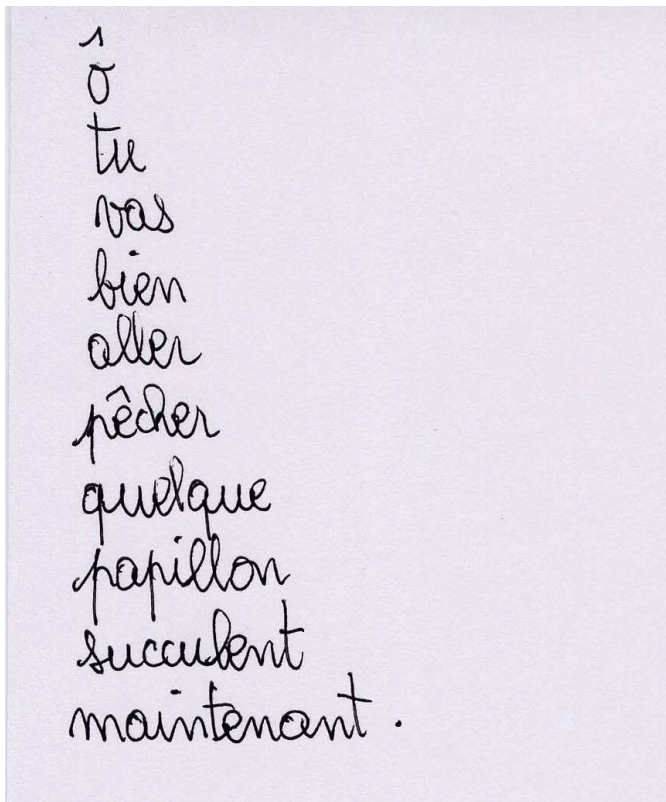 ô
tu
vas
bien
aller
pêcher
quelque
papillon
succulent
maintenant.